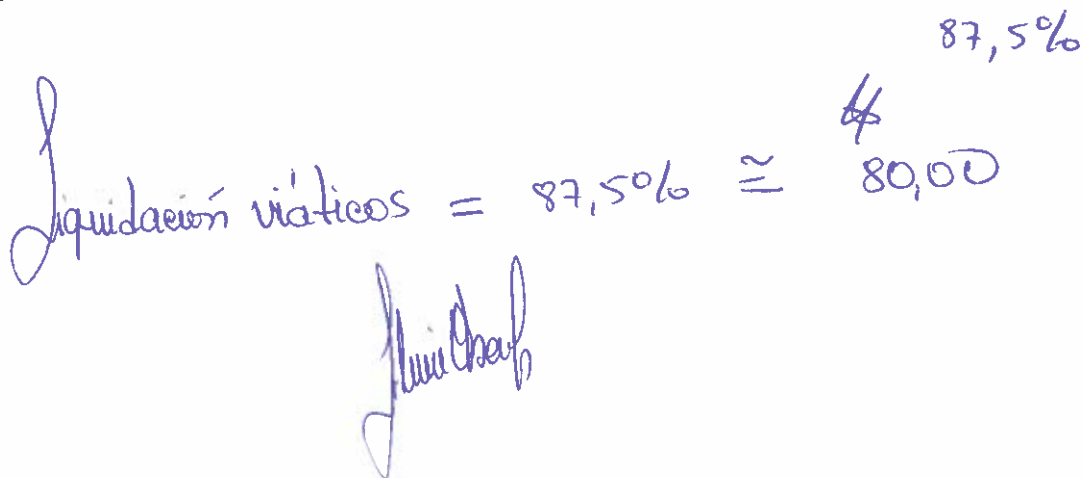 87,5%
Liquidación viáticos = 87,5% ≅ 80,00